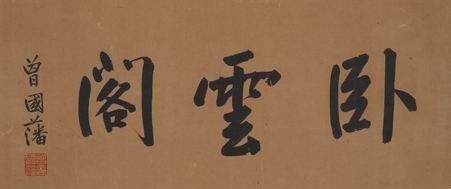 卧雲閣
曾國藩